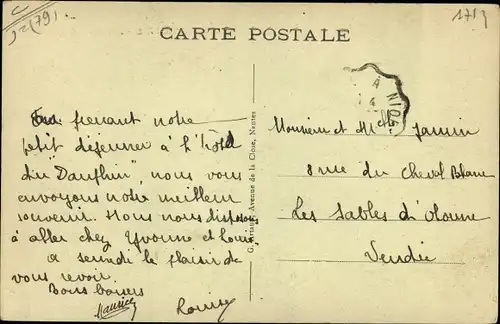 1713
CARTE POSTALE
NIOR
En prenant notre
petit déjeuner à l'hôtel
du "Dauphin", nous vous
envoyons notre meilleur
souvenir. Nous nous disposons
à aller chez Yvonne et Louis
a samedi le plaisir de
vous revoir.
Bons baisers
Maurice Louise
Avenue de la Close, Nantes
Monsieur et Mme Jamin
8 rue du Cheval Blanc
Les Sables d'Olonne
Vendée